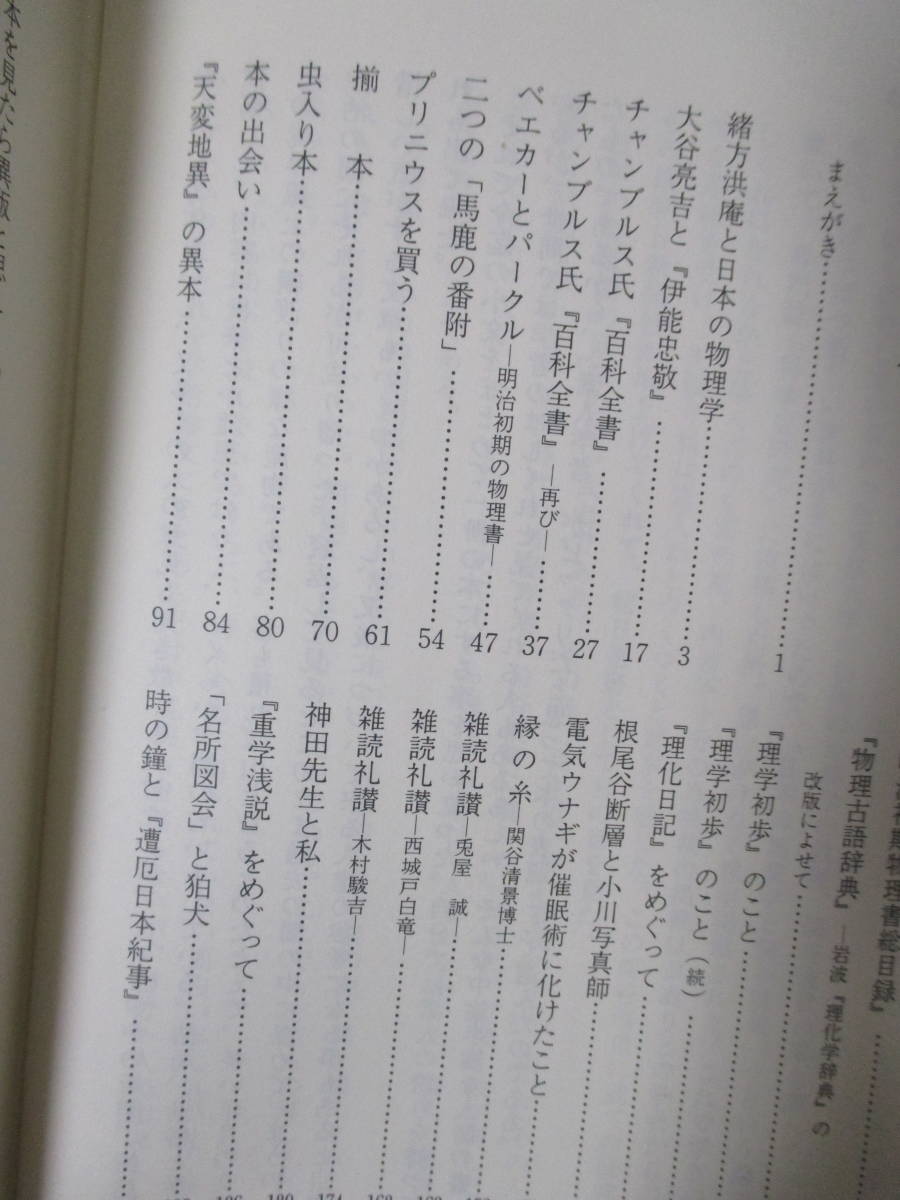 まえがき……………………1
緒方洪庵と日本の物理学……………………3
大谷亮吉と『伊能忠敬』……………………17
チャンブルス氏『百科全書』……………………27
チャンブルス氏『百科全書』―再び―……………………37
ベエカーとパークル―明治初期の物理書―……………………47
二つの「馬鹿の番附」……………………54
プリニウスを買う……………………61
揃　本……………………70
虫入り本……………………80
本の出会い……………………84
『天変地異』の異本……………………91
初期物理書総目録』……
『物理古語辞典』―岩波『理化学辞典』の
改版によせて……………………
『理学初歩』のこと……………………
『理学初歩』のこと（続）……………………
『理化日記』をめぐって……………………
根尾谷断層と小川写真師……………………
電気ウナギが催眠術に化けたこと……………………
縁の糸―関谷清景博士……………………
雑読礼讃―兎屋　誠―……………………
雑読礼讃―西城戸白竜―……………………
雑読礼讃―木村駿吉―……………………
神田先生と私……………………
『重学浅説』をめぐって……………………
「名所図会」と狛犬……………………
時の鐘と『遭厄日本紀事』……………………
本を見たら異版と思